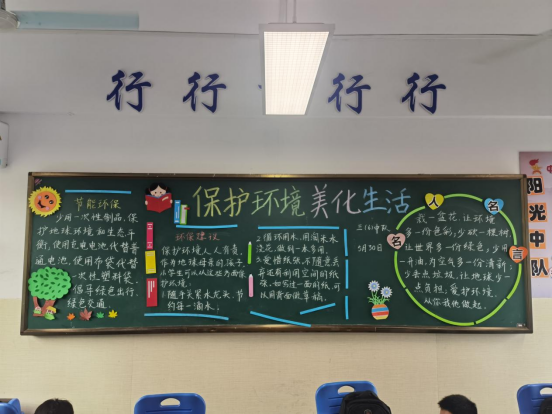 行行行行
保护环境美化生活
节能环保
少用一次性制品,保
护地球环境和生态平
衡,使用充电电池代替普
通电池,使用布袋代替
一次性塑料袋,
倡导绿色出行,
绿色交通。
环保建议
保护环境人人有责,
1.随手关紧水龙头,节
约每一滴水;
2.循环用水,用淘米水
浇花,做到一水多用。
3.爱惜纸张,不随意丢
弃还有利用空间的纸
张,如写过一面的纸,可
以用背面做草稿。
5月30日
名人名言
栽一盆花,让环境
多一份色彩,少砍一棵树
让世界多一份绿色,少用
一升油,为空气多一份清新;
少丢点垃圾,让地球少一
点负担,爱护环境,
从你我他做起。
阳光中队